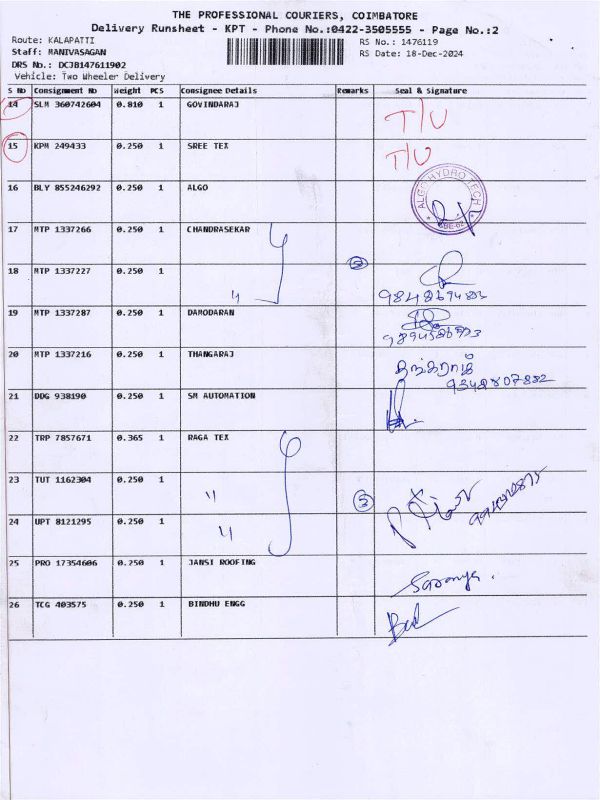 THE PROFESSIONAL COURIERS, COIMBATORE
Delivery Runsheet - KPT - Phone No.:0422-3505555 - Page No.:2
Route: KALAPATTI RS No.: 1476119
Staff: MANIVASAGAN RS Date: 18-Dec-2024
DRS No.: DCJB147611902
Vehicle: Two Wheeler Delivery
S No Consignment No Weight PCS Consignee Details Remarks Seal & Signature
14 SLM 360742604 0.810 1 GOVINDARAJ T/U
15 KPM 249433 0.250 1 SREE TEX T/U
16 BLY 855246292 0.250 1 ALGO ALGO HYDRO TECH
17 MTP 1337266 0.250 1 CHANDRASEKAR
18 MTP 1337227 0.250 1 " 2
19 MTP 1337287 0.250 1 DAMODARAN
20 MTP 1337216 0.250 1 THANGARAJ தங்கராஜ்
21 DDG 938190 0.250 1 SM AUTOMATION
22 TRP 7857671 0.365 1 RAGA TEX
23 TUT 1162304 0.250 1 " 3
24 UPT 8121295 0.250 1 "
25 PRO 17354606 0.250 1 JANSI ROOFING Saranya.
26 TCG 403575 0.250 1 BINDHU ENGG